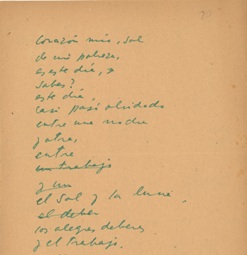 Corazón mío, sol
de mi pobreza,
es este día,
sabes?
este día,
casi pasó olvidado
entre una noche
y otra,
entre
un trabajo
y un
el sol y la luna,
el deber
los alegres deberes
y el trabajo.